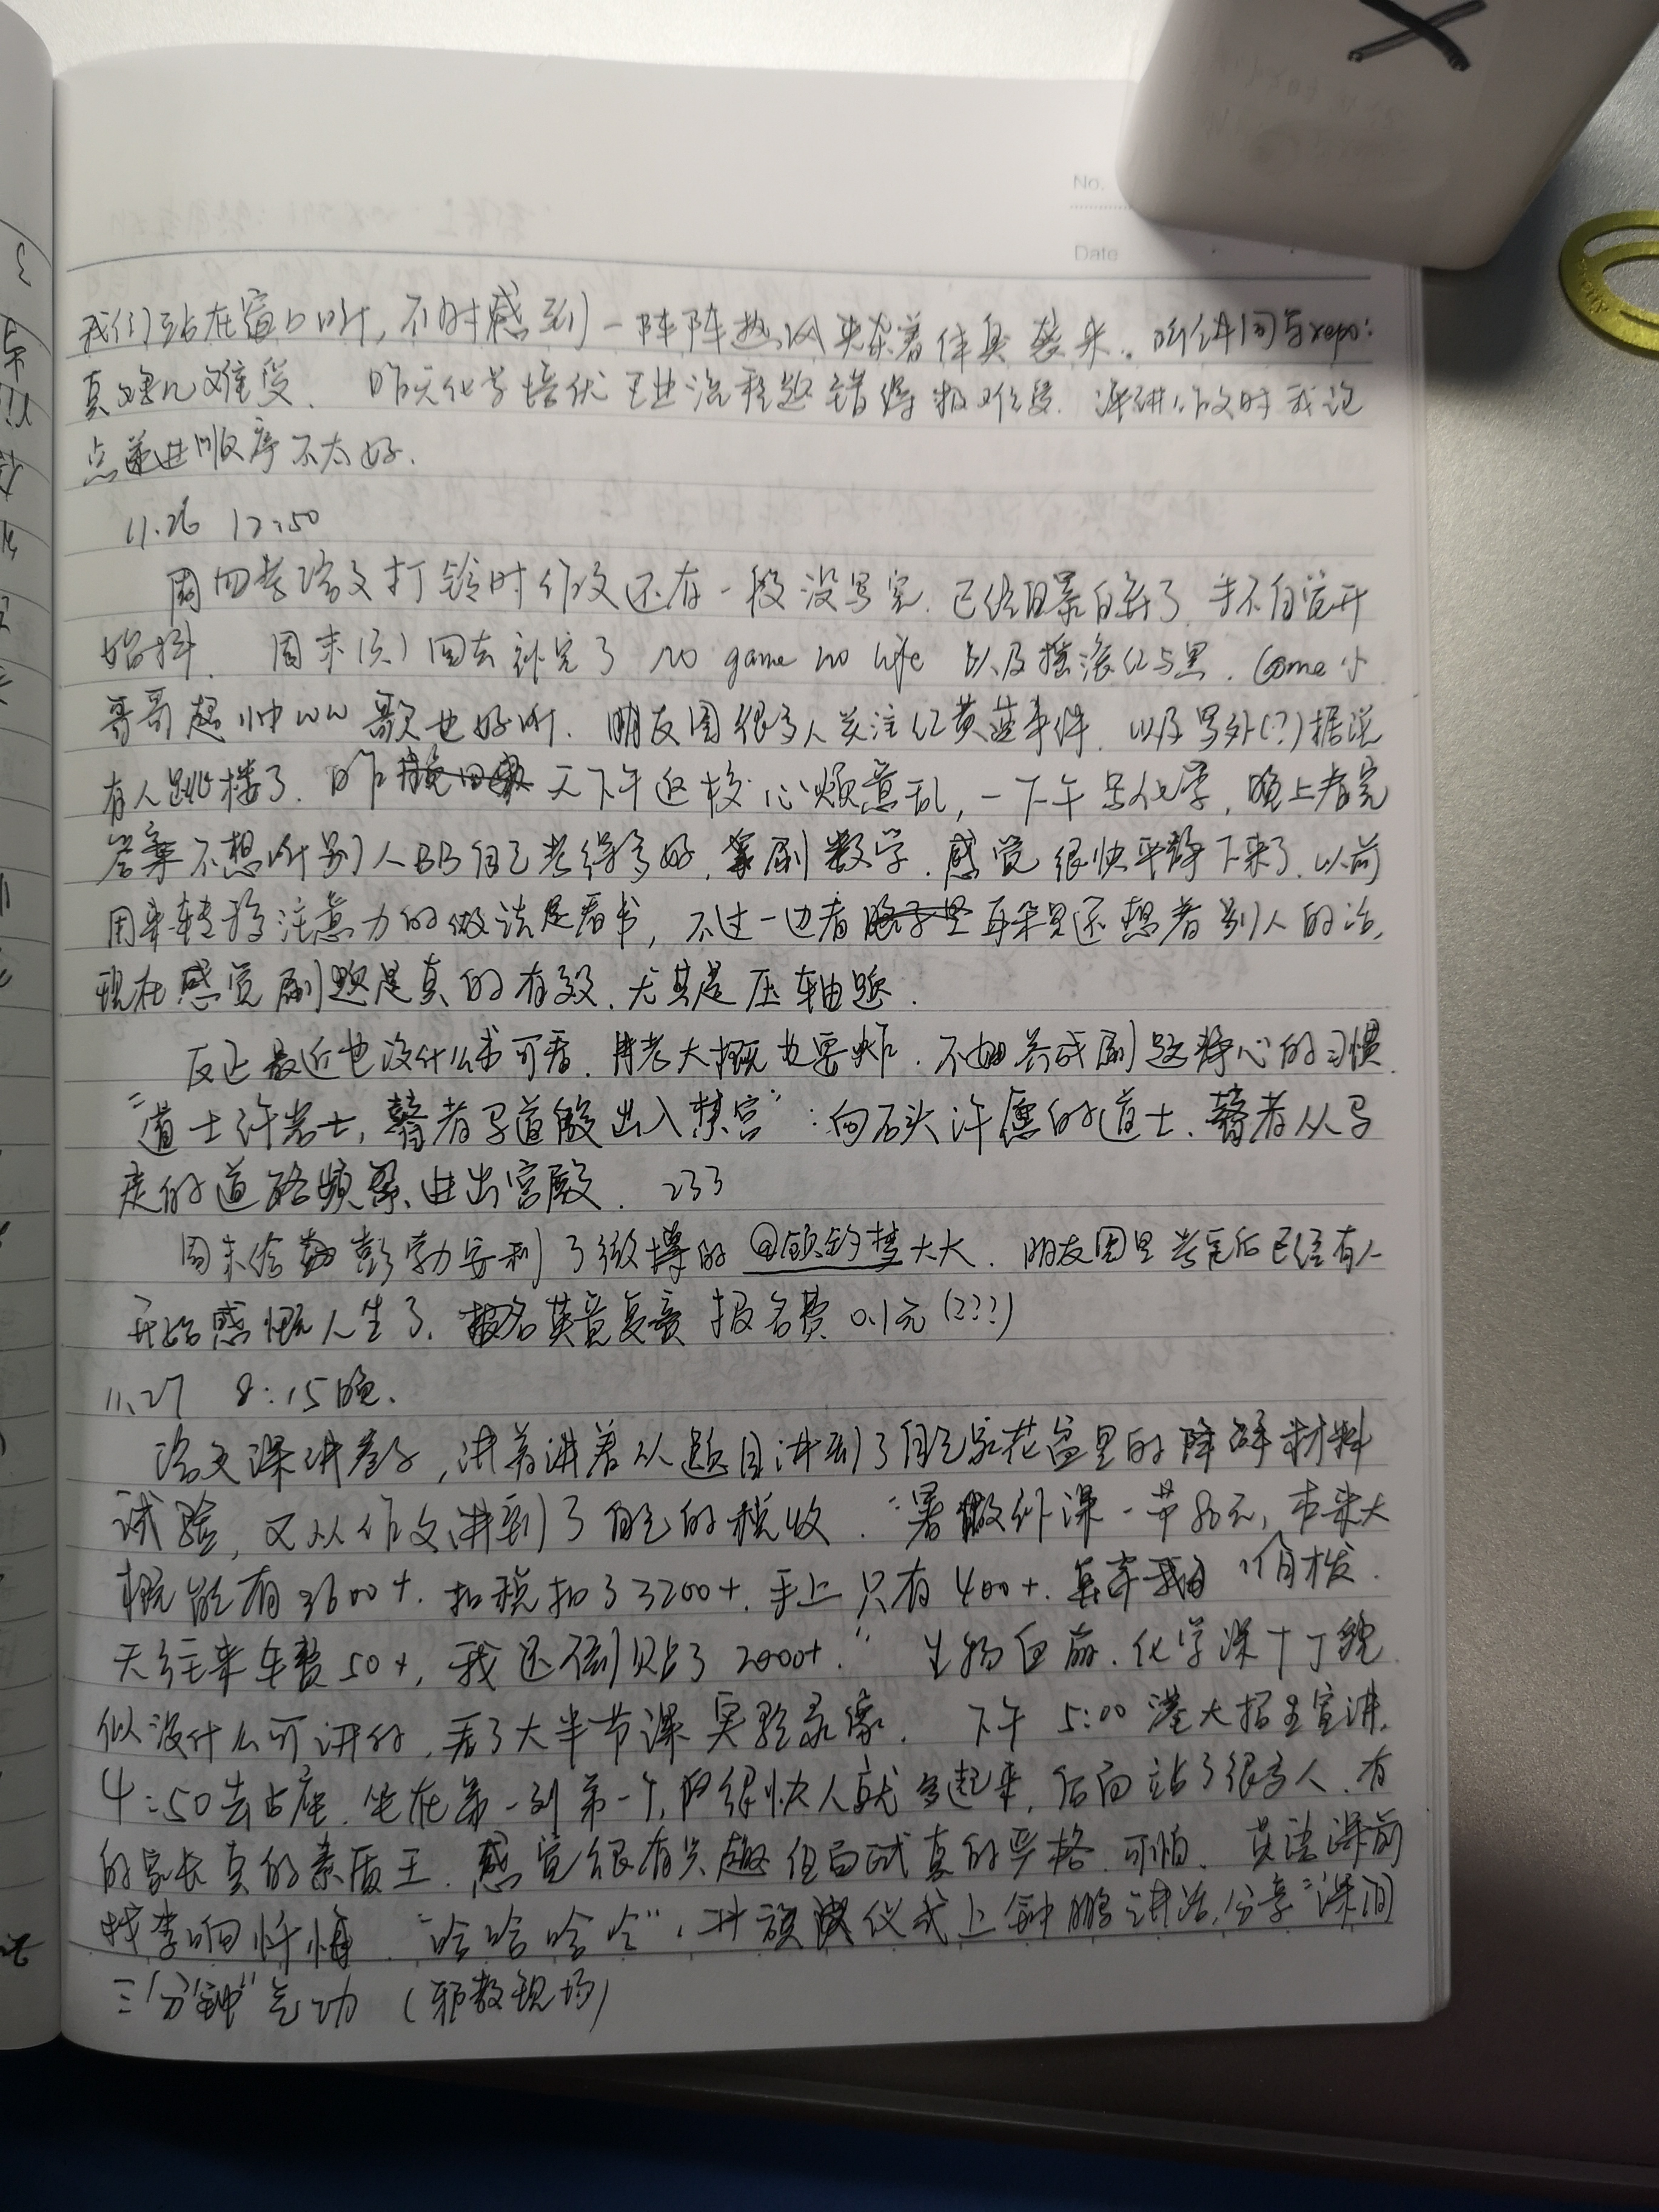 No.
Date
我们站在窗口听,不时感到一阵阵热风夹杂着体臭袭来。听体同学repo:
真难受. 昨天化学培优工业流程题错得极难受. 课讲作文时我论
点递进顺序不太好.
11.26 12:50
周四考语文打铃时作文还有一段没写完.已经自暴自弃了.手不自觉开
始抖. 周末(伪)回去补完了 no game no life 以及摇滚红与黑. Come小
哥哥超帅ww歌也好听. 朋友圈很多人关注红黄蓝事件.以及号外(?)据说
有人跳楼了.昨天下午返校心烦意乱,一下午写化学.晚上看完
答案不想听别人BB自己考得多好,拿刷数学.感觉很快平静下来了.以前
用来转移注意力的做法是看书,不过一边看耳朵里还想着别人的话,
现在感觉刷题是真的有效.尤其是压轴题.
反正最近也没什么书可看.月考大概也要炸.不如养成刷题静心的习惯.
“道士许岩士,瞽者马道殷出入禁宫”:向石头许愿的道士、瞽者从马
走的道路频繁进出宫殿. 233
周末给彭勃安利了微博的@顾钧梦大大.朋友圈里考完后已经有人
开始感慨人生了.报名英竞复赛报名费0.1元(???)
11.27 8:15晚.
语文课讲卷子,讲着讲着从题目讲到了自己家花盆里的降解材料
试验,又从作文讲到了自己的税收.“暑假补课一节80元,本来大
概能有3600+.扣税扣了3200+.手上只有400+.
天往来车费50+,我还倒贴了2000+.” 生物自崩.化学课丁丁貌
似没什么可讲的,看了大半节课实验录像. 下午5:00港大招生宣讲.
4:50去占座.坐在第一列第一个,但很快人就多起来,后面站了很多人.有
的家长真的素质王.感觉很有兴趣但面试真的严格.可怕. 英语课前
找李响忏悔.“哈哈哈哈”.升旗仪式上钟鹏讲话.分享“课间
三分钟”气功(邪教现场)